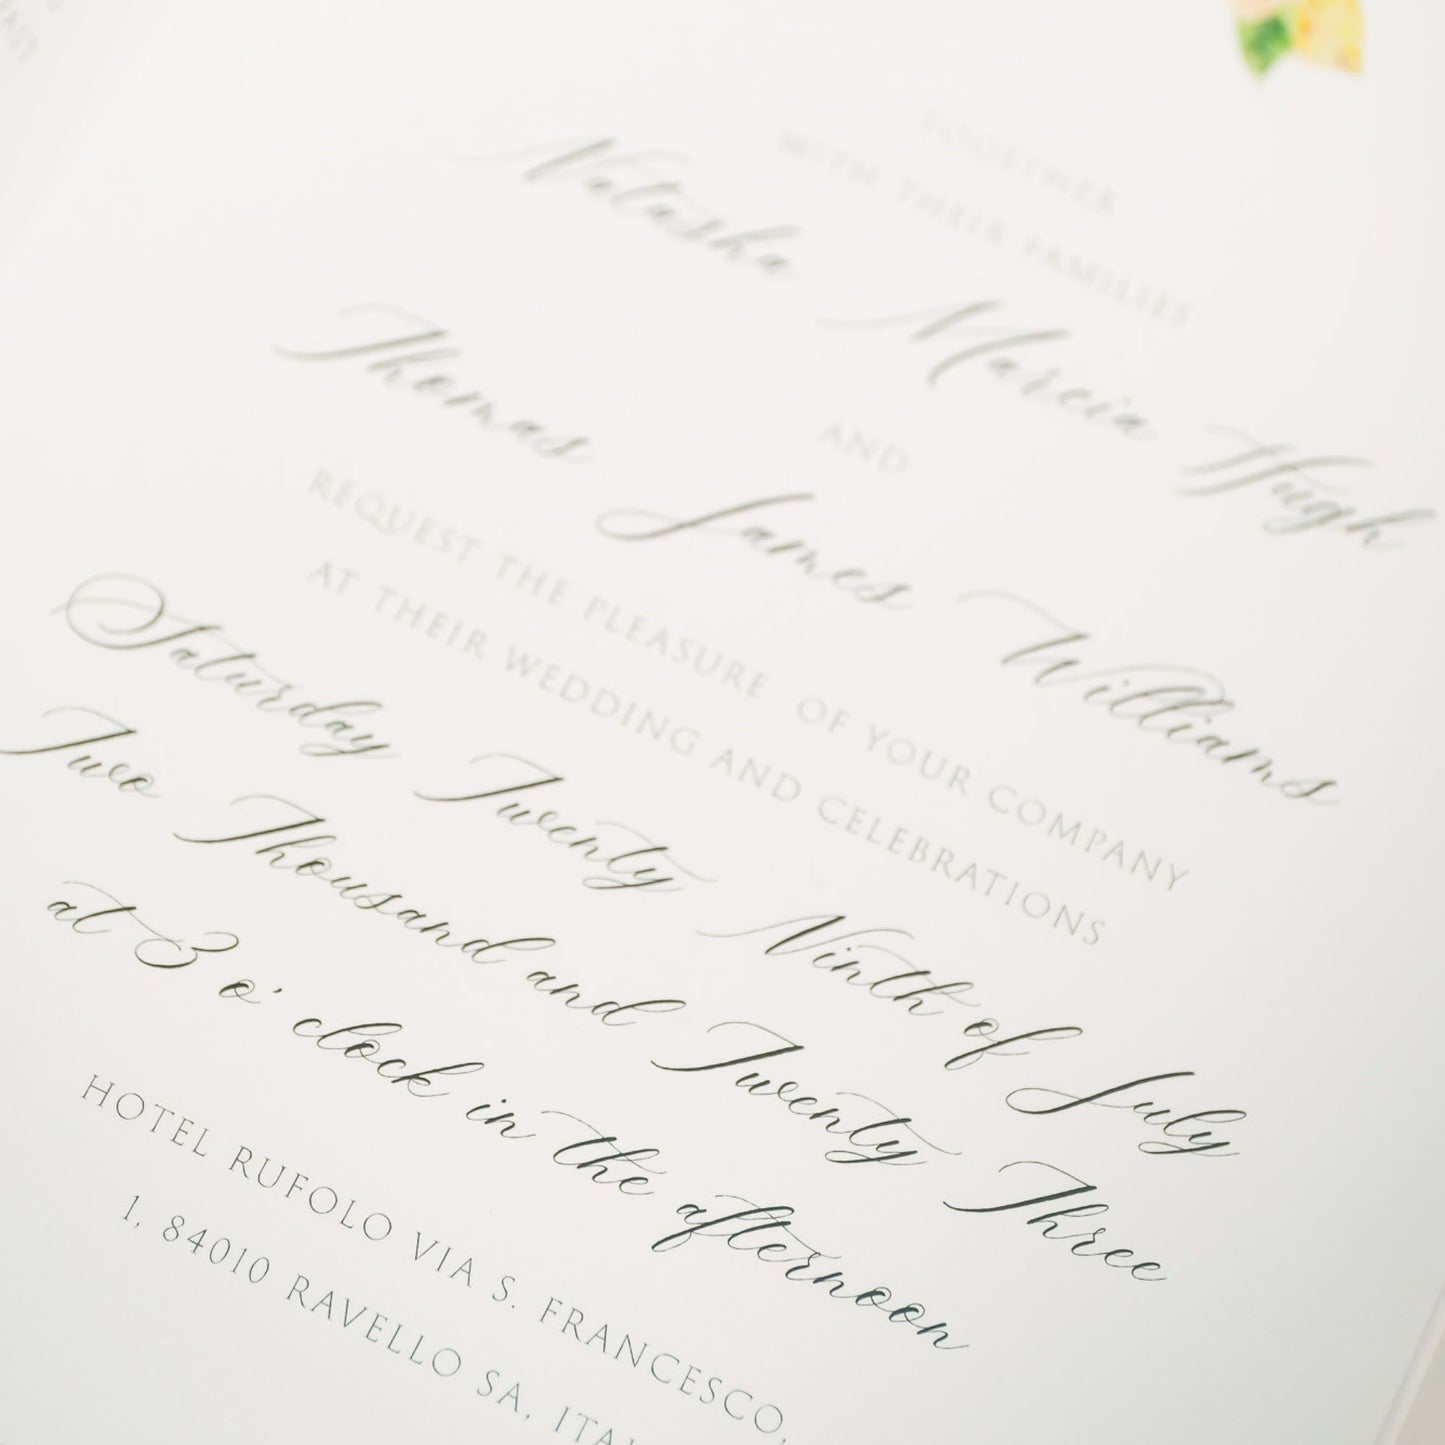 TOGETHER
WITH THEIR FAMILIES
Natasha Marcia Hugh
AND
Thomas James Williams
REQUEST THE PLEASURE OF YOUR COMPANY
AT THEIR WEDDING AND CELEBRATIONS
Saturday Twenty Ninth of July
Two Thousand and Twenty Three
at 3 o' clock in the afternoon
HOTEL RUFOLO VIA S. FRANCESCO,
1, 84010 RAVELLO SA, ITAL